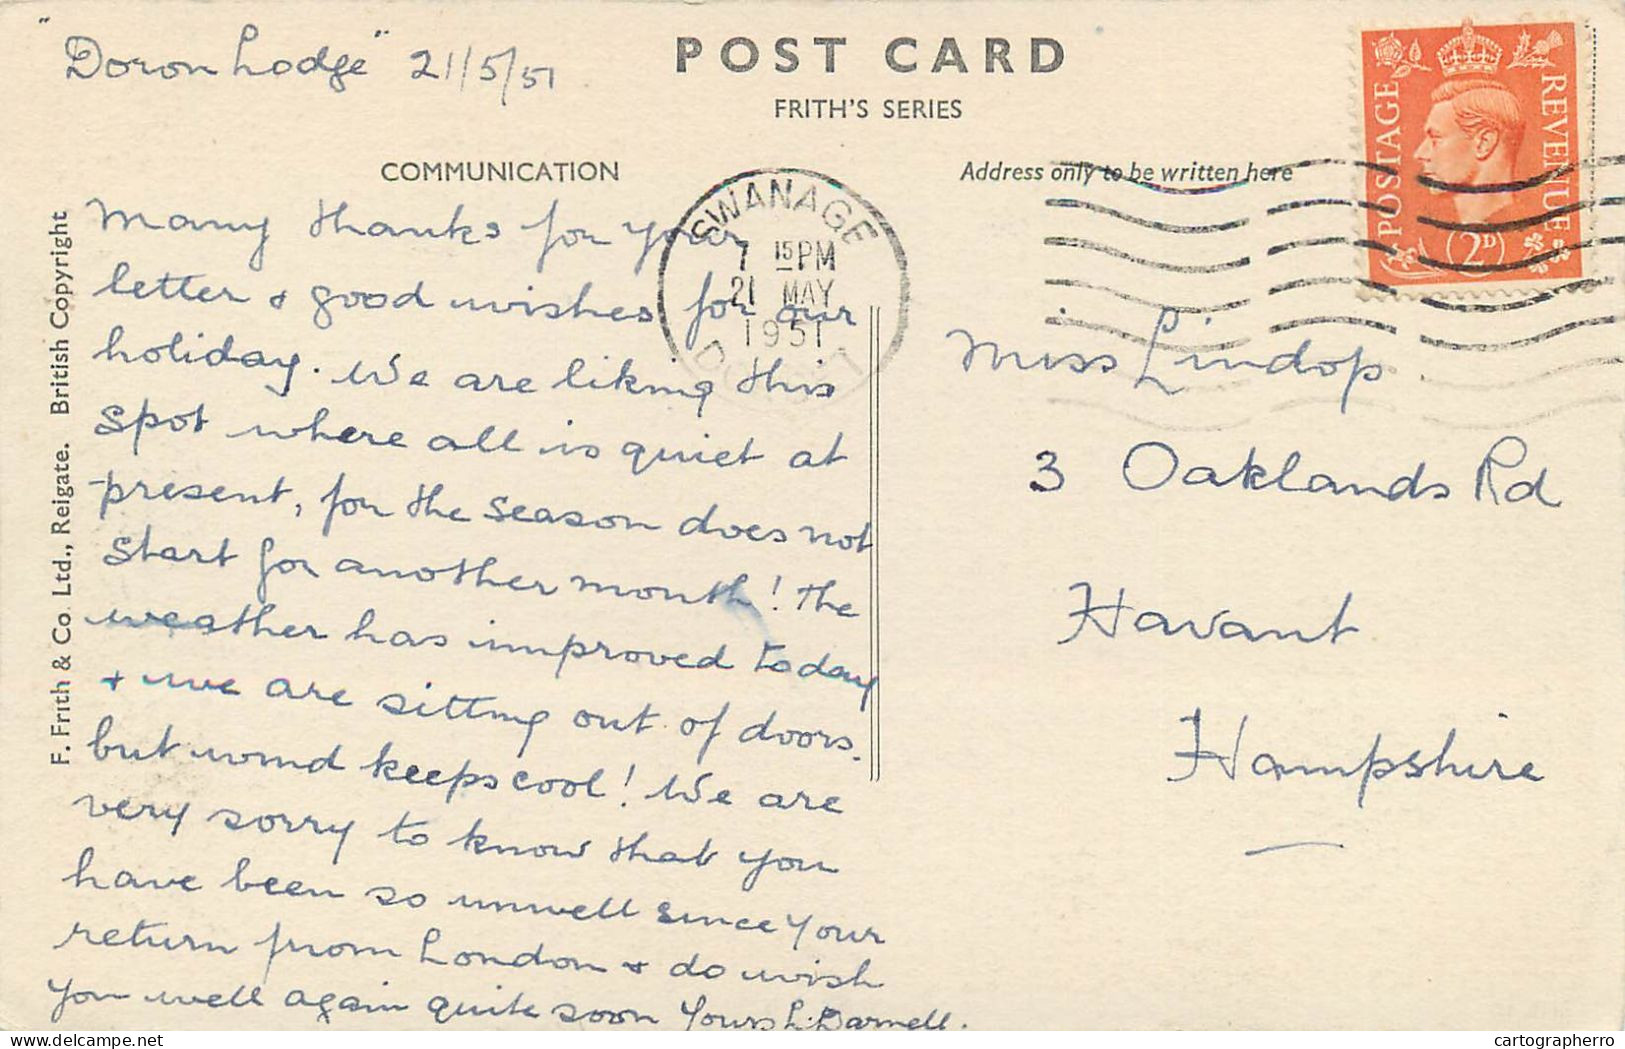 "Doron Lodge" 21/5/51
POST CARD
FRITH'S SERIES
COMMUNICATION
Address only to be written here
F. Frith & Co. Ltd., Reigate. British Copyright
Many thanks for your
letter & good wishes for our
holiday. We are liking this
spot where all is quiet at
present, for the season does not
start for another month! The
weather has improved today
& we are sitting out of doors.
but wind keeps cool! We are
very sorry to know that you
have been so unwell since your
return from London & do wish
you well again quite soon Yours L. Darnell.
SWANAGE
7 15 PM
21 MAY
1951
DORSET
POSTAGE
REVENUE
2D
Miss Lindop
3 Oaklands Rd
Havant
Hampshire
delcampe.net
cartographerro